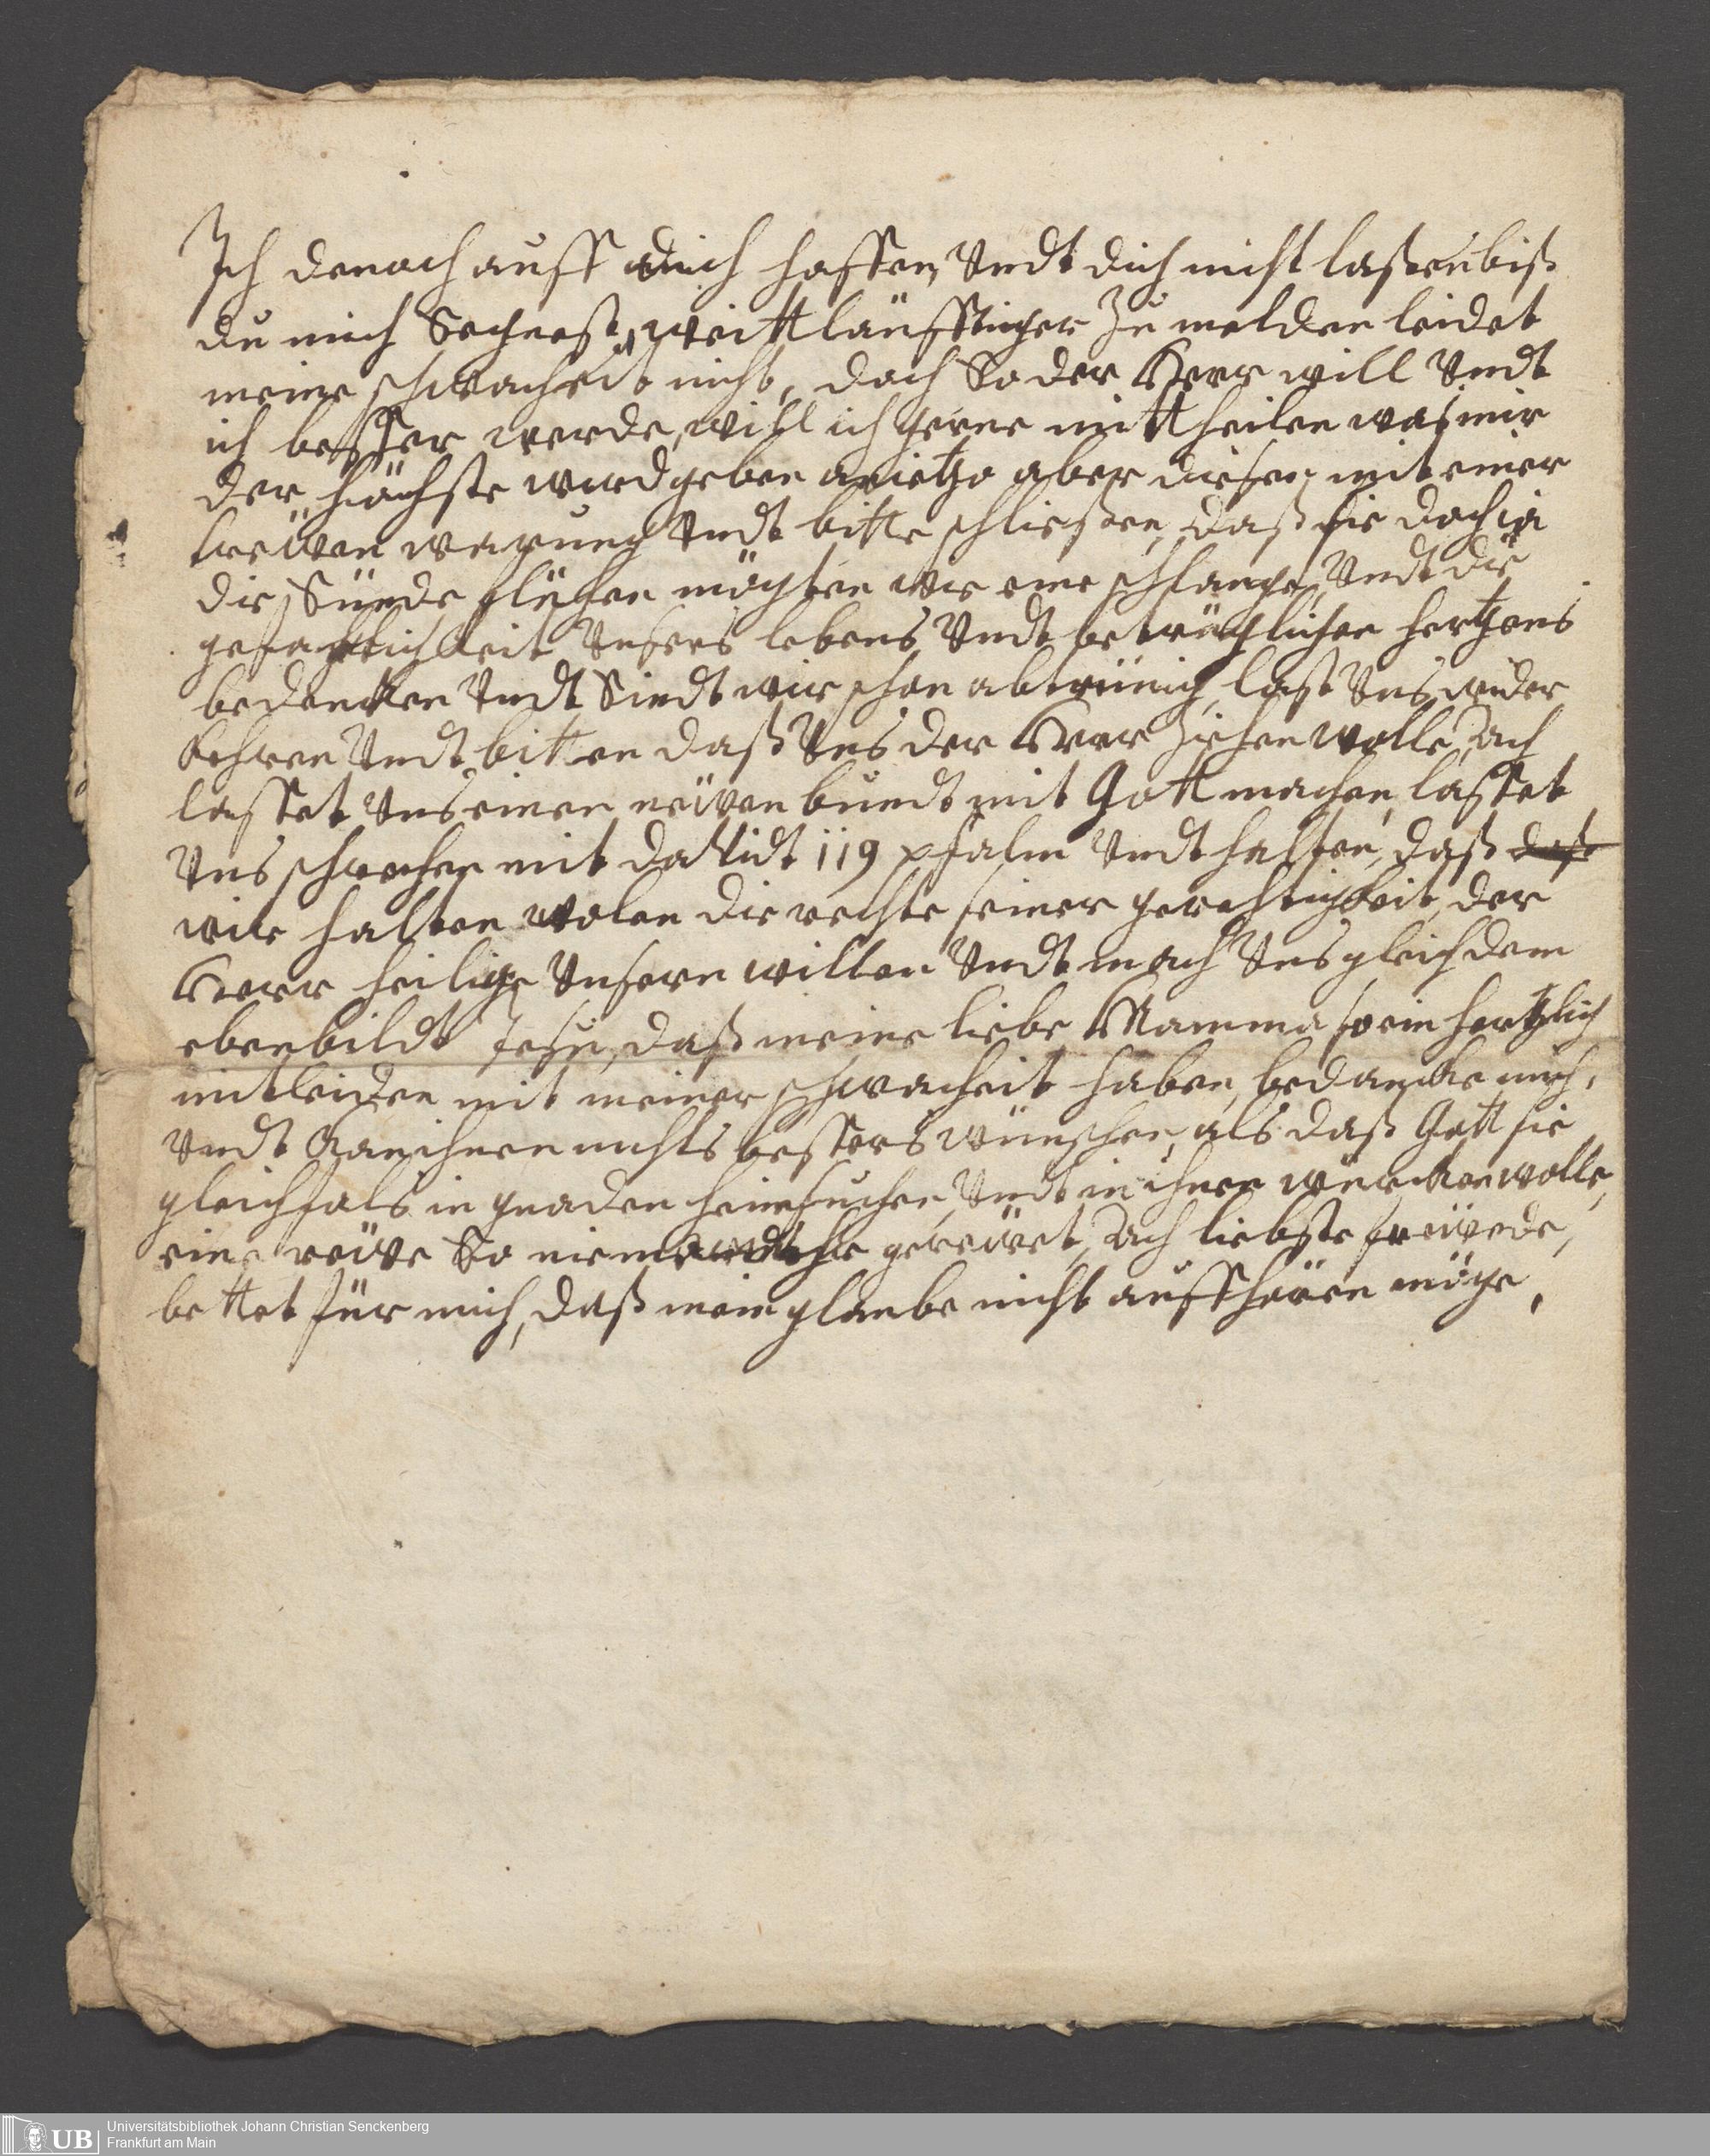 Ich denoch auff dich hoffen, Undt dich nicht laßen biß
du mich Segnest, weittläufftiger zu melden leidet
meine schwacheit nicht, doch So der Herr will Undt
ich besser werde, will ich gerne mittheilen was mir
der höchste wird geben anietzo aber dieses mit einer
treüen warnung Undt bitte schließen, daß sie doch ia
die Sünde flühen möchten wie eine schlange, Undt die
gefahrlichkeit Unsers lebens Undt betrüglichen hertzens
bedencken Undt Sindt wir schon abtrünig, last Uns wider
kehren Undt bitten daß Uns der Herr ziehen wolle, Ach
lasset Uns einen neüen bundt mit Gott machen, lasset
Uns schweren mit david 119 psalm Undt halten, daß daß
wir halten wolen die rechte seiner gerechtigkeit, der
Herr heilige Unsern willen Undt mach Uns gleich dem
ebenbildt Jesu, daß meine liebe Mamma so ein hertzlich
mitleiden mit meiner schwacheit haben, bedancke mich,
Undt kan ihnen nichts bessers wünschen, als daß Gott sie
gleichfals in gnaden heimsuchen, Undt in ihnen würcken wolle,
eine reüe So niemandt hie gereüet, Ach liebste freünde,
bettet für mich, daß mein glaube nicht auffhören möge,
Universitätsbibliothek Johann Christian Senckenberg
UB Frankfurt am Main